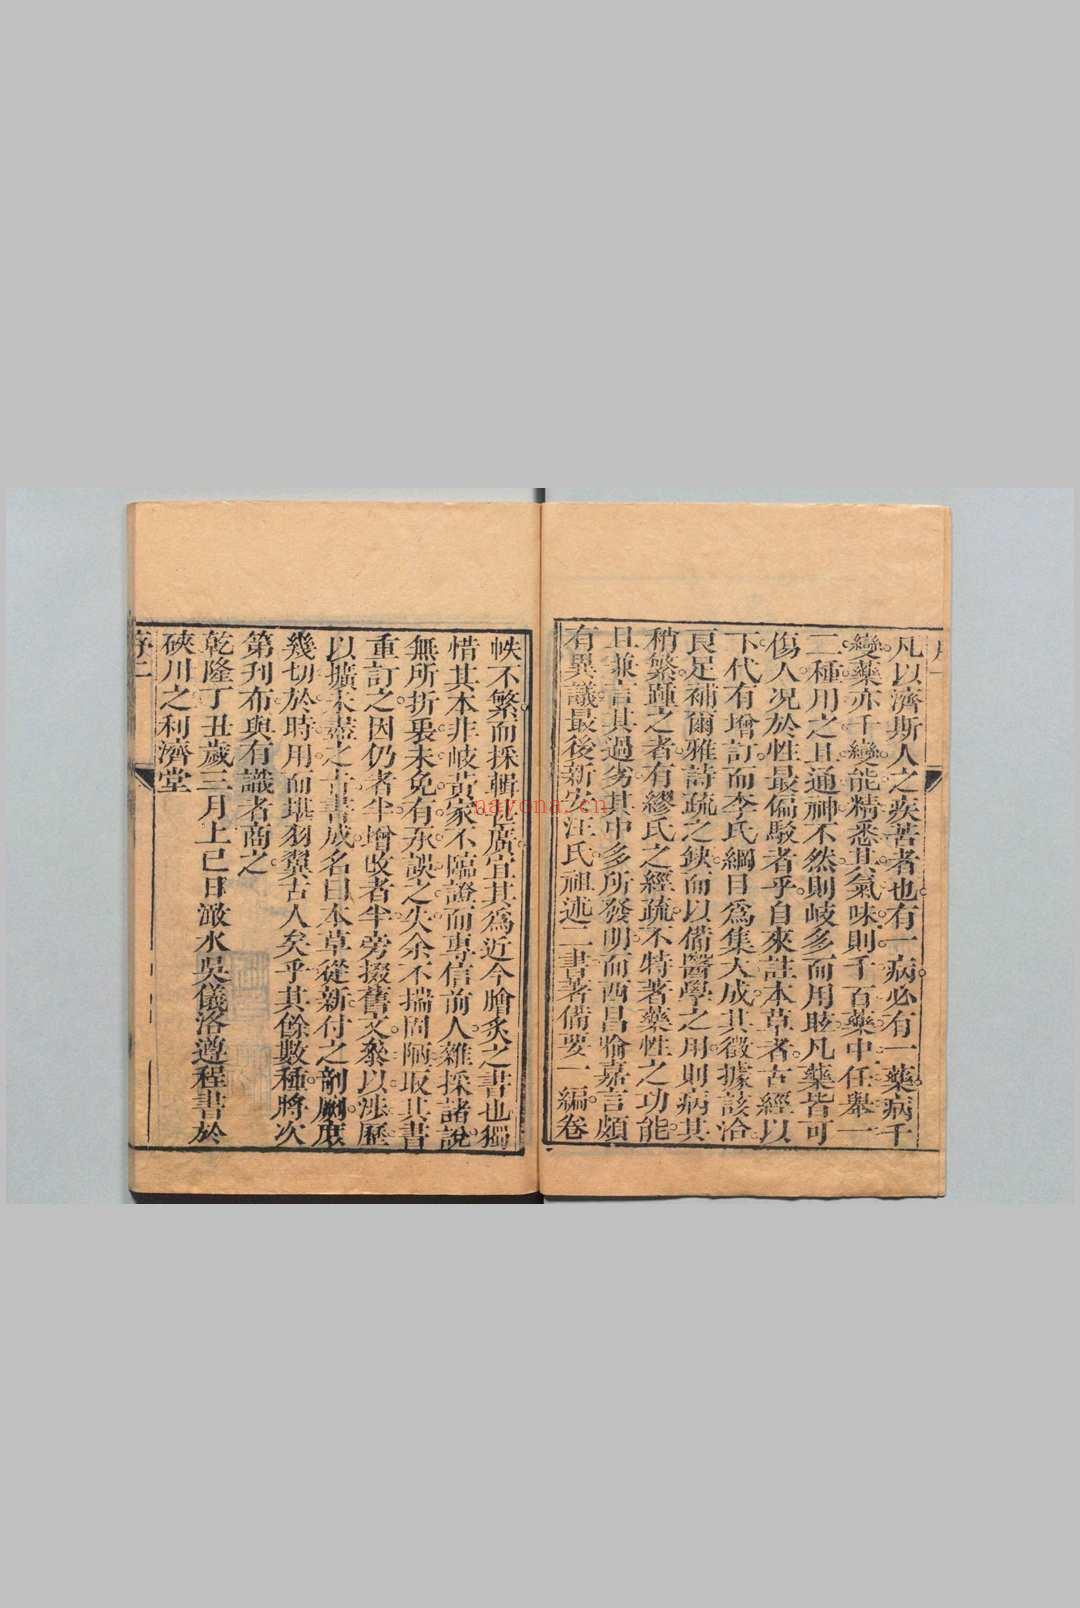 凡以濟斯人之疾苦者也有一病必有一藥病千
變藥亦千變能精悉其氣味則千百藥中任舉一
二種用之且通神不然則岐多而用眩凡藥皆可
傷人况於性最偏駁者乎自來註本草者古經以
下代有增訂而李氏綱目爲集大成其徵據該洽
良足補爾雅詩疏之缺而以備醫學之用則病其
稍繁踵之者有繆氏之經疏不特著藥性之功能
且兼言其過劣其中多所發明而西昌喻嘉言頗
有異議最後新安汪氏祖述二書著備要一編卷
帙不繁而採輯甚廣宜其爲近今膾炙之書也獨
惜其本非岐黃家不臨證而專信前人雜採諸說
無所折衷未免有承誤之失余不揣固陋取其書
重訂之因仍者半增改者半旁掇舊文參以涉歷
以擴未盡之古書成名曰本草從新付之剞劂庶
幾切於時用而堪羽翼古人矣乎其餘數種將次
第刊布與有識者商之
乾隆丁丑歲三月上巳日澉水吳儀洛遵程書於
硤川之利濟堂
序二
aayona.cn